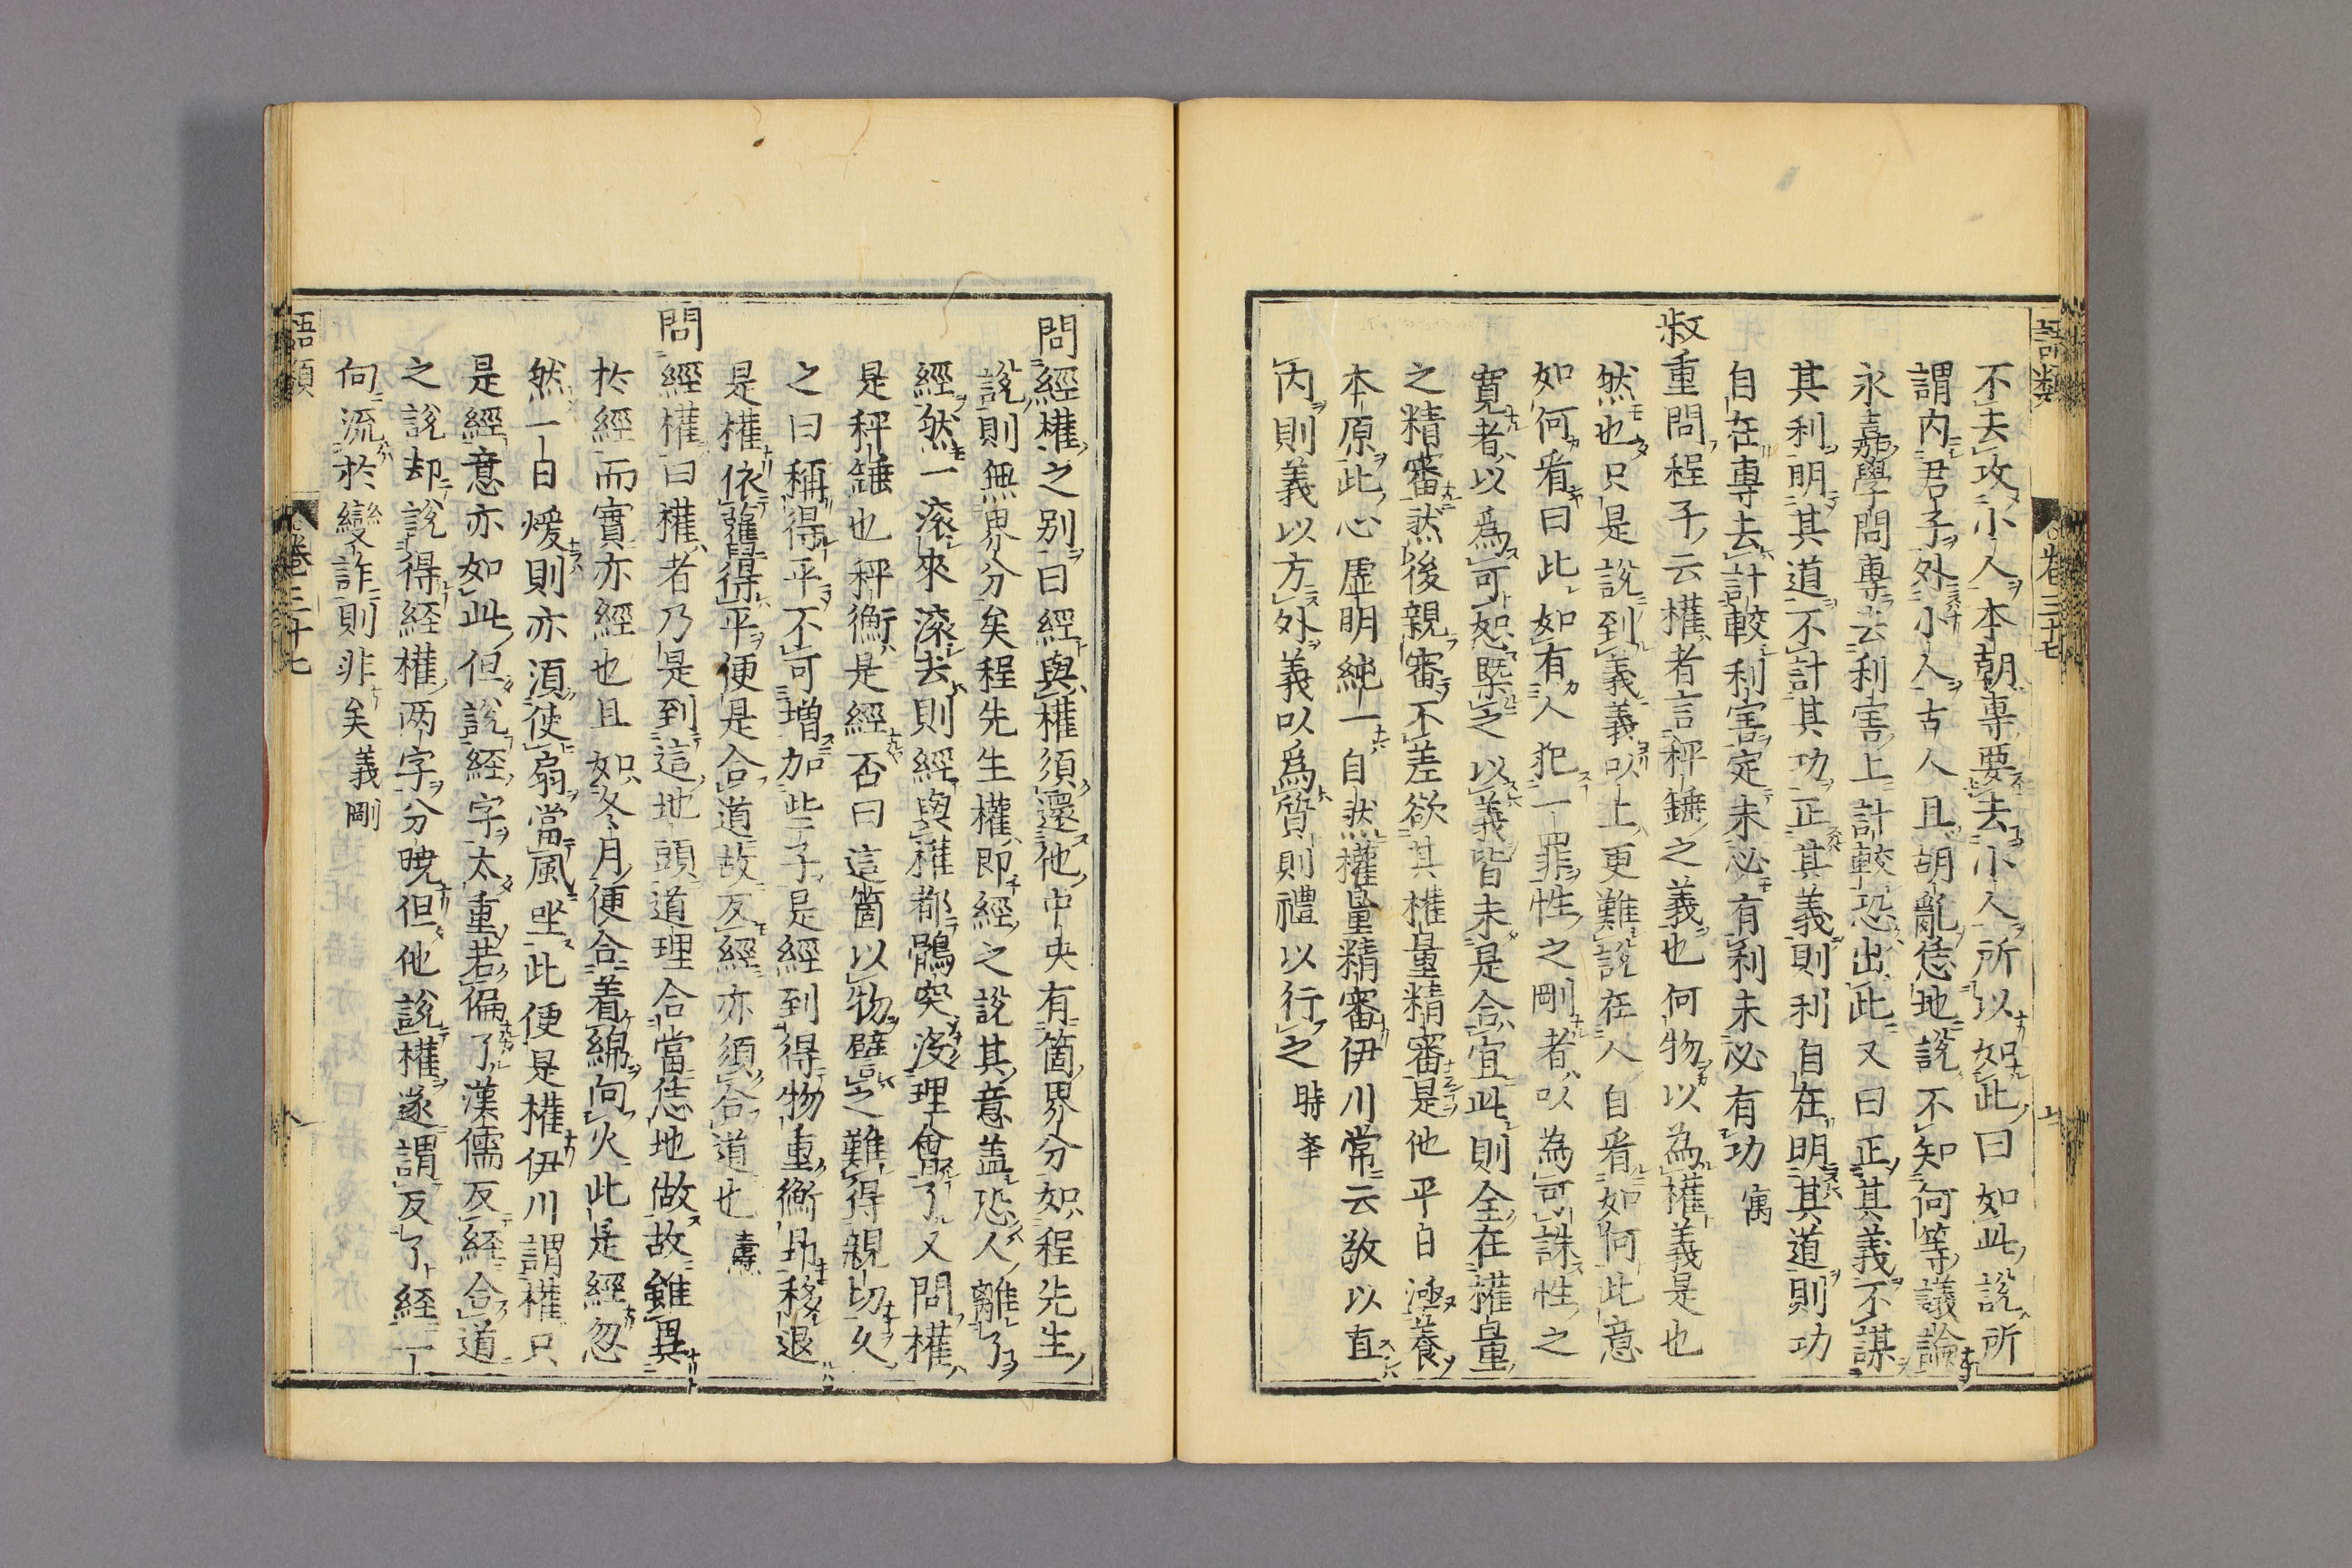 語類 卷三十七
不去攻小人本朝專要去小人所以如此曰如此說所
謂内君子外小人古人且胡亂恁地說不知何等議論
永嘉學問專去利害上計較恐出此又曰正其義不謀
其利明其道不計其功正其義則利自在明其道則功
自在專去計較利害定未必有利未必有功 寓
叔重問程子云權者言秤錘之義也何物以為權義是也
然也只是說到義義以上更難說在人自看如何此意
如何看曰此如有人犯一罪性之剛者以為可誅性之
寬者以爲可恕槩之以義皆未是合宜此則全在權量
之精審然後親審不差欲其權量精審是他平日涵養
本原此心虛明純一自然權量精審伊川常云敬以直
内則義以方外義以爲質則禮以行之 時举
問經權之别曰經與權須還他中央有箇界分如程先生
說則無界分矣程先生權即經之說其意盖恐人離了
經然一滚來滚去則經與權都鶻突没理會了又問權
是秤錘也秤衡是經否曰這箇以物譬之難得親切久
之曰稱得平不可增加些子是經到得物重衡昂移退
是權依舊得平便是合道故反經亦須合道也 燾
問經權曰權者乃是到這地頭道理合當恁地做故雖異
於經而實亦經也且如冬月便合着綿向火此是經忽
然一日煖則亦須使扇當風坐此便是權伊川謂權只
是經意亦如此但說經字太重若偏了漢儒反經合道
之說却說得經權两字分曉但他說權遂謂反了經一
向流於變詐則非矣 義剛
語類 卷三十七